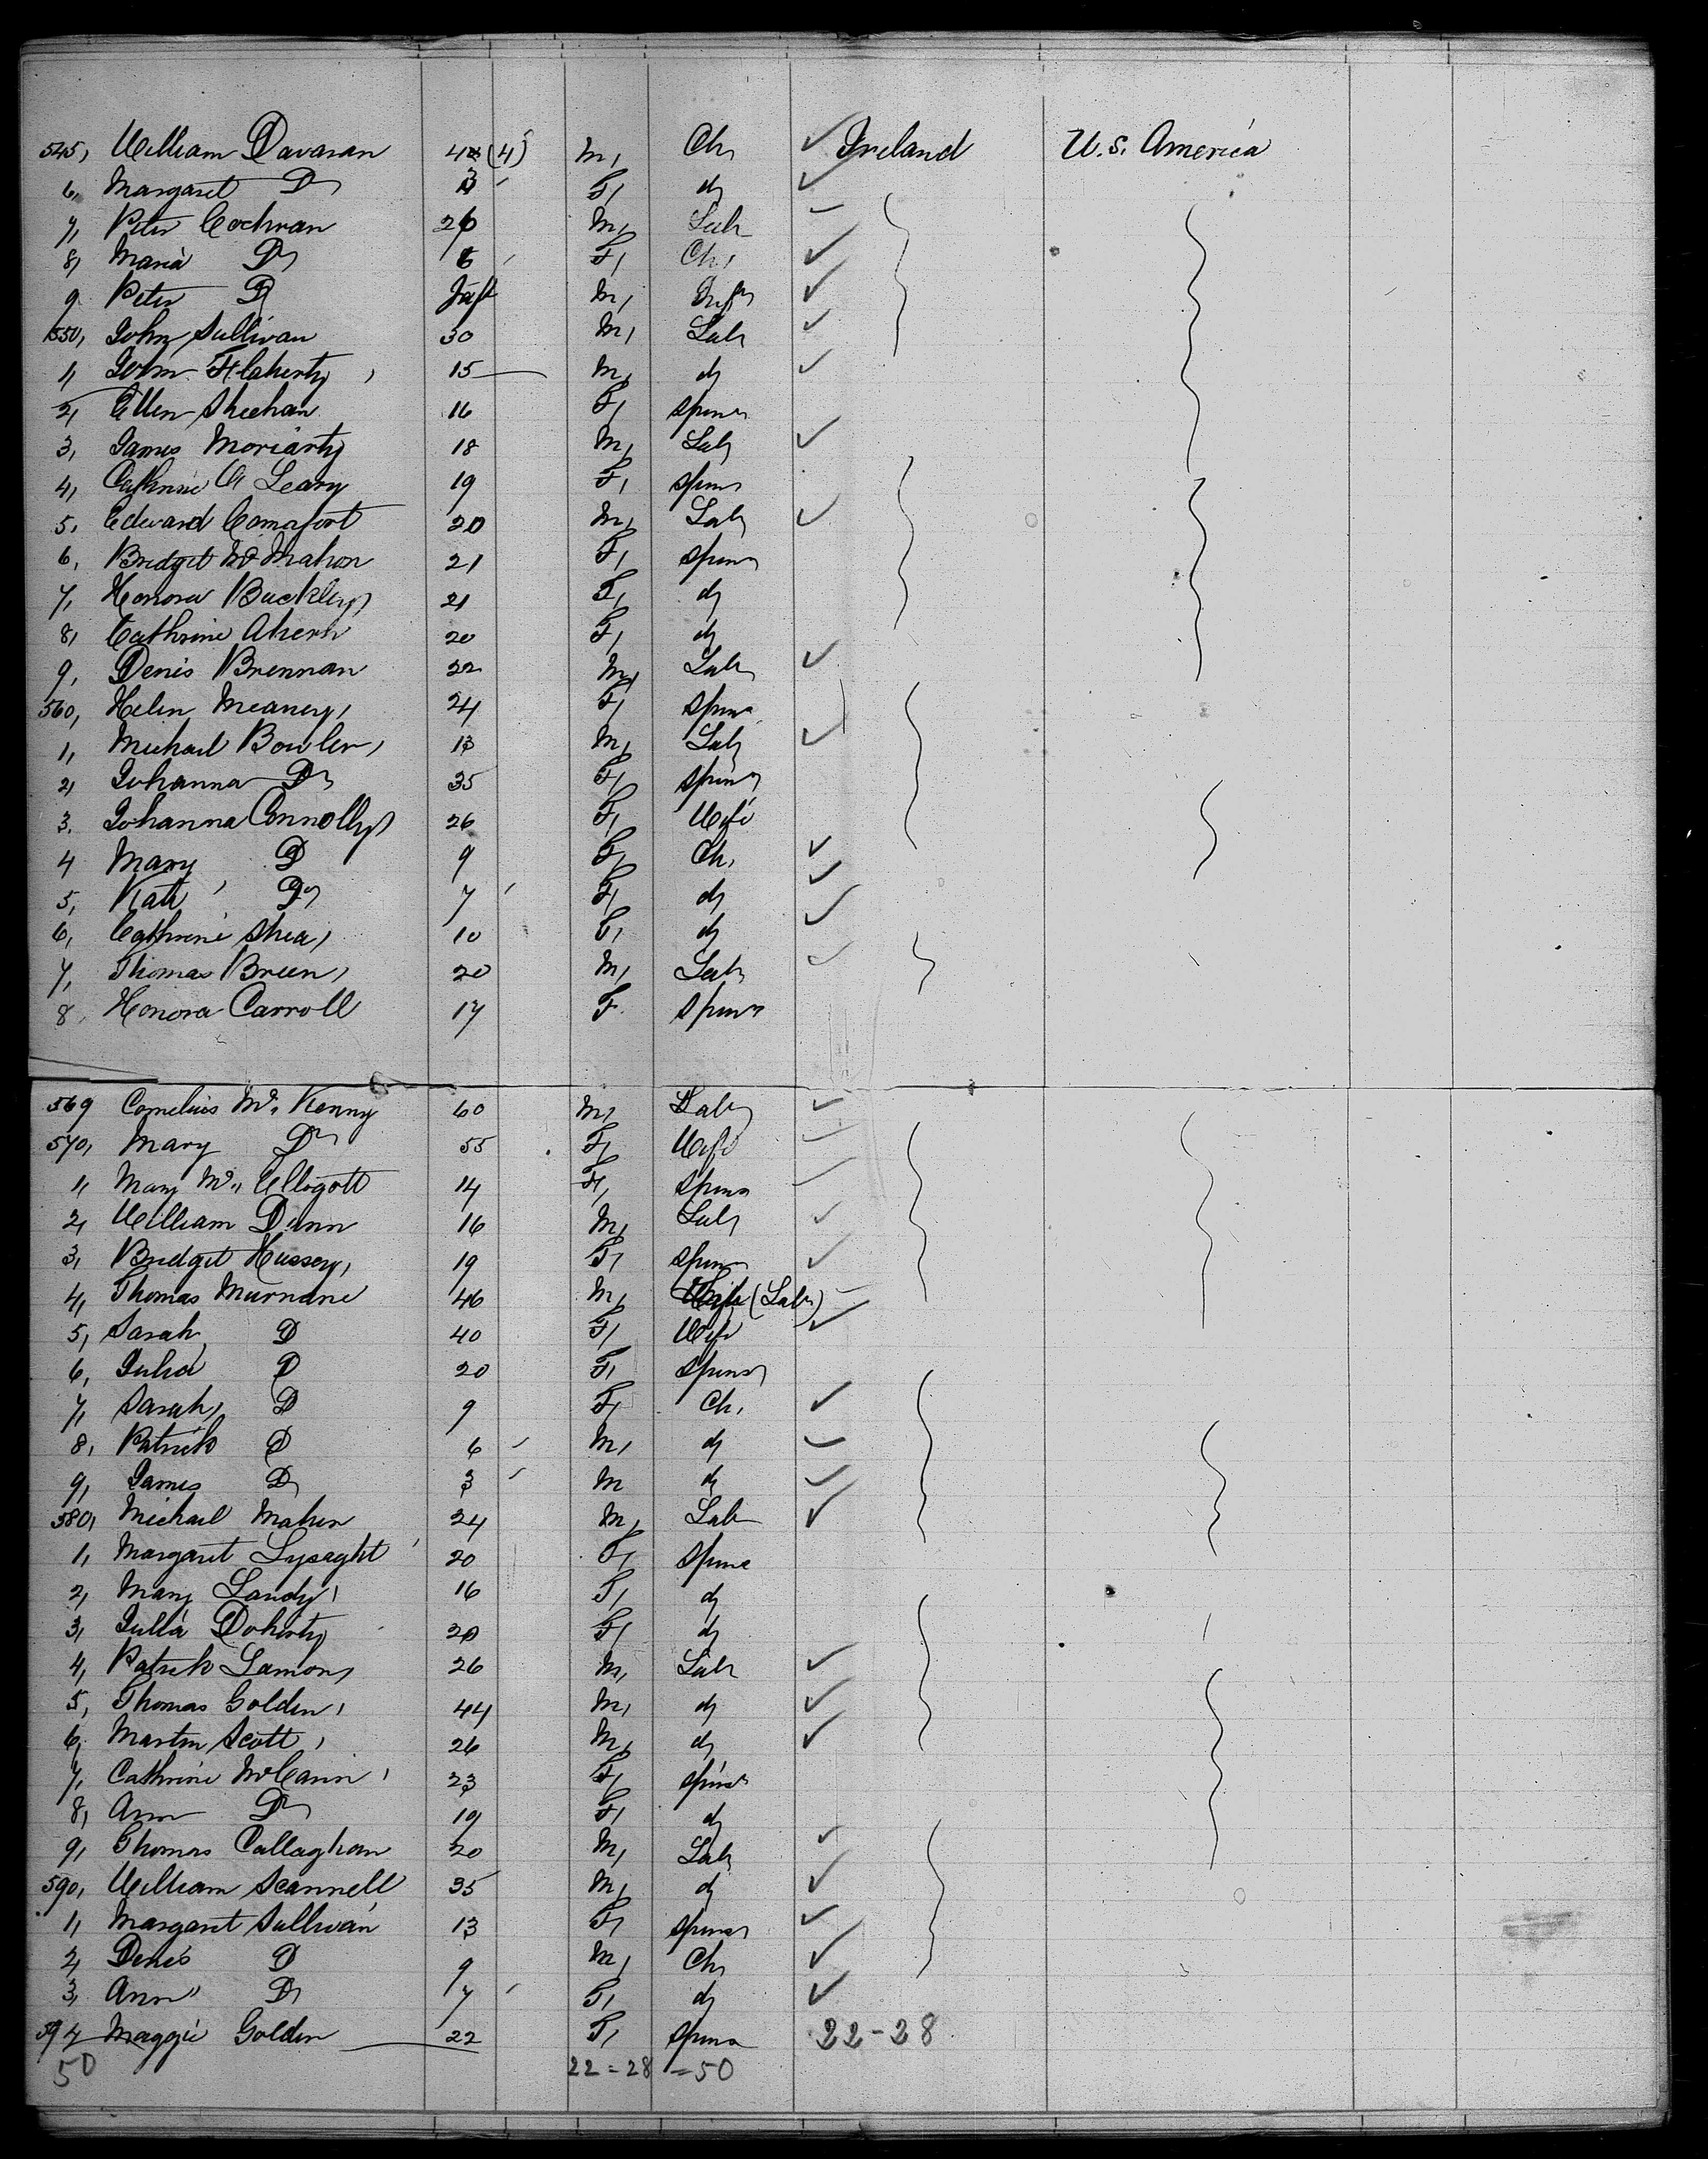 545, William Davaran 4 (4) M, Ch, ✓ Ireland U.S. America
6, Margaret D 3 F, do ✓
7, Peter Cochran 26 M, Lab
8, Maria D 6 F, Ch, ✓
9 Peter D Inft M, Inft ✓
550, John Sullivan 30 M, Lab ✓
1, John Flaherty, 15 M, do ✓
2, Ellen Sheehan 16 F, Spins
3, James Moriarty 18 M, Lab ✓
4, Cathrine O Leary 19 F, Spins
5, Edward Comafort 20 M, Lab ✓
6, Bridget McMahon 21 F, Spins
7, Honora Buckley, 21 F, do
8, Cathrine Ahern 20 F, do
9, Denis Brennan 22 M, Lab ✓
560, Helen Meaney, 24 F, Spins
1, Michael Bowler, 13 M, Lab ✓
2, Johanna Do 35 F, Spins
3, Johanna Connolly, 26 F, Wife
4 Mary D 9 F, Ch, ✓
5, Kate Do 7 F, do ✓
6, Cathrine Shea, 10 F, do ✓
7, Thomas Breen, 20 M, Lab ✓
8, Honora Carroll 17 F Spins
569 Cornelius Mc Kenny 60 M, Lab ✓
570, Mary Do 55 F, Wife ✓
1, Mary Mc Elligott 14 F, Spins
2, William Dunn 16 M, Lab ✓
3, Bridget Hussey, 19 F, Spins ✓
4, Thomas Murnane 46 M, Wife (Lab)
5, Sarah D 40 F, Wife ✓
6, Julia D 20 F, Spins
7, Sarah, D 9 F, Ch, ✓
8, Patrick D 6 M, do ✓
9, James D 3 M do ✓
580, Michael Maher 24 M, Lab ✓
1, Margaret Lysaght 20 F, Spins
2, Mary Landy, 16 F, do
3, Julia Doherty 20 F, do
4, Patrick Lamon, 26 M, Lab ✓
5, Thomas Golden, 44 M, do ✓
6, Martin Scott, 26 M, do ✓
7, Cathrine McCann, 23 F, Spins
8, Ann Do 19 F, do
9, Thomas Callaghan 20 M, Lab ✓
590, William Scannell 35 M, do ✓
1, Margaret Sullivan 13 F, Spins ✓
2, Denis D 9 M, Ch, ✓
3, Ann D 7 F, do ✓
594 Maggie Golden 22 F, Spins 22-28
50 22=28 =50